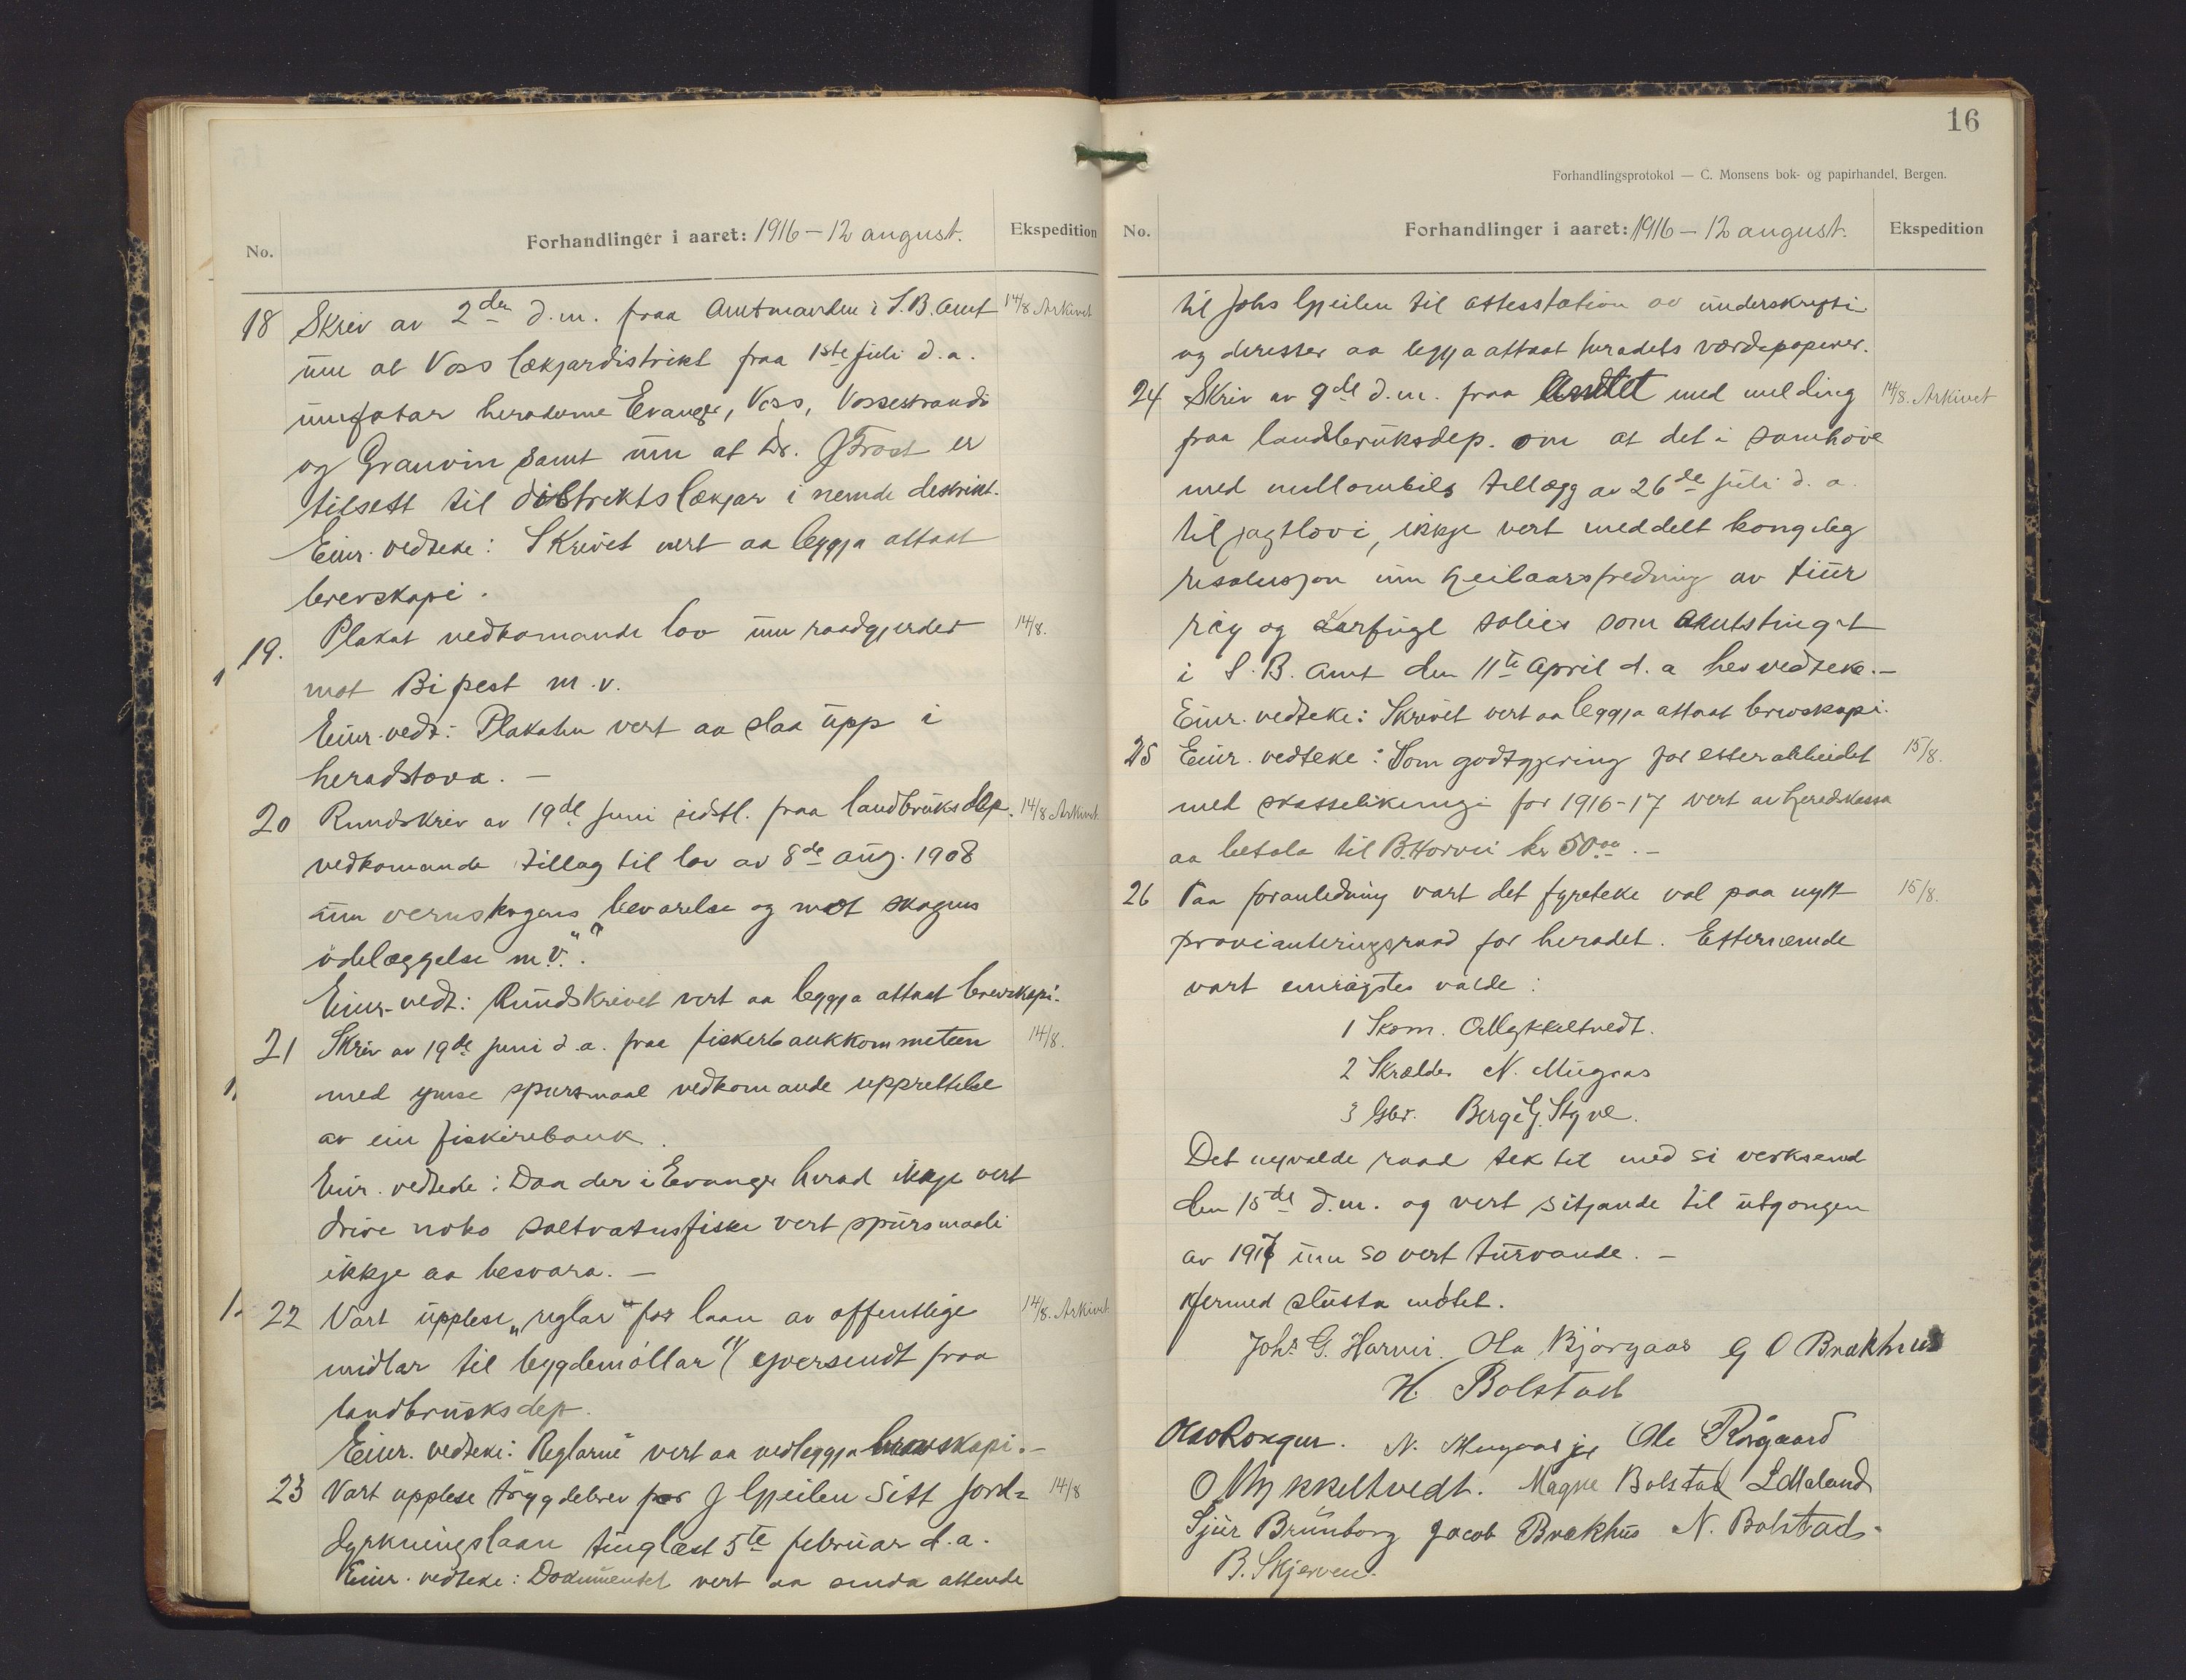 No. Forhandlinger i aaret: 1916 – 12 august. Ekspedition
18 Skriv av 2den d.m. fraa Amtmanden i S.B. Amt 14/8 Arkivet
um at Voss lækjardistrikt fraa 1ste juli d.a.
umfatar heraderne Evanger, Voss, Vossestrandi
og Granvin samt um at Dr. J Frost er
tilsett til distriktslækjar i nemde destrikt.
Einr. vedteke: Skrivet vert aa leggja attaat
brevskapi.
19. Plakat vedkomande lov um raadgjerder 14/8.
mot Bipest m.v.
Einr. vedt: Plakaten vert aa slaa upp i
heradstova. –
20 Rundskriv av 19de juni sidstl. fraa landbruksdep. 14/8 Arkivet
vedkomande tillag til lov av 8de aug. 1908
um vernskogens bevarelse og mot skogens
ødelæggelse m.v.".
Einr. vedt: Rundskrivet vert aa leggja attaat brevskapi.
21 Skriv av 19de juni d.a. fraa fiskerbankkommiteen 14/8.
med ymse spursmaal vedkomande upprettelse
av ein fiskirebank.
Einr. vedtede: Daa der i Evanger herad ikkje vert
drive noko saltvatnsfiske vert spursmaali
ikkje aa besvara. –
22 Vart upplese „reglar" for laan av offentlige 14/8. Arkivet
midlar til bygdemøllar" yversendt fraa
landbruksdep.
Einr. vedteke: Reglarne vert aa vedleggja brevskapi. –
23 Vart upplese trygdebrev for J Gjeilen sitt jord= 14/8
dyrkningslaan tinglæst 5te februar d.a.
Einr. vedteke: Dokumentet vert aa senda attende
16
Forhandlingsprotokol — C. Monsens bok- og papirhandel, Bergen.
No. Forhandlinger i aaret: 1916 – 12 august. Ekspedition
til Johs Gjeilen til attesstation av underskrifti
og deretter aa leggja attaat heradets værdepapirer.
24 Skriv av 9de d.m. fraa Amtet med melding 14/8. Arkivet
fraa landbruksdep. om at det i samhøve
med mellombils tillægg av 26de juli d.a.
til jagtlovi, ikkje vert meddelt kongeleg
resolusjon um heilaarsfredning av tiur
røy og soleis som Amtstinget
i S.B. Amt den 11te April d.a hev vedteke. –
Einr. vedteke: Skrivet vert aa leggja attaat brevskapi.
25 Einr. vedteke: Som godtgjering for etterarbeidet 15/8.
med skattelikningi for 1916-17 vert av heradskassa
aa betala til B. Horvei kr 50 00. –
26 Paa foranledning vart det fyreteke val paa nytt 15/8.
provianteringsraad for heradet. Etternemde
vart einrøystes valde:
1 Skom. O Mykkeltvedt.
2 Skrædder N. Mugaas
3 Gbr. Berge G. Styve.
Det nyvalde raad tek til med si verksemd
den 15de d.m. og vert sitjande til utgangen
av 1917 um so vert turvande. –
Hermed slutta møtet.
Johs G. Horvei. Ola Bjørgaas G O Brækhus
H. Bolstad
Olav Rongen. N. Mugaas jr Ole Røgaard
O Mykkeltvedt. Magne Bolstad L Mæland
Sjur Brunborg Jacob Brækhus N. Bolstad.
B. Skjerven.